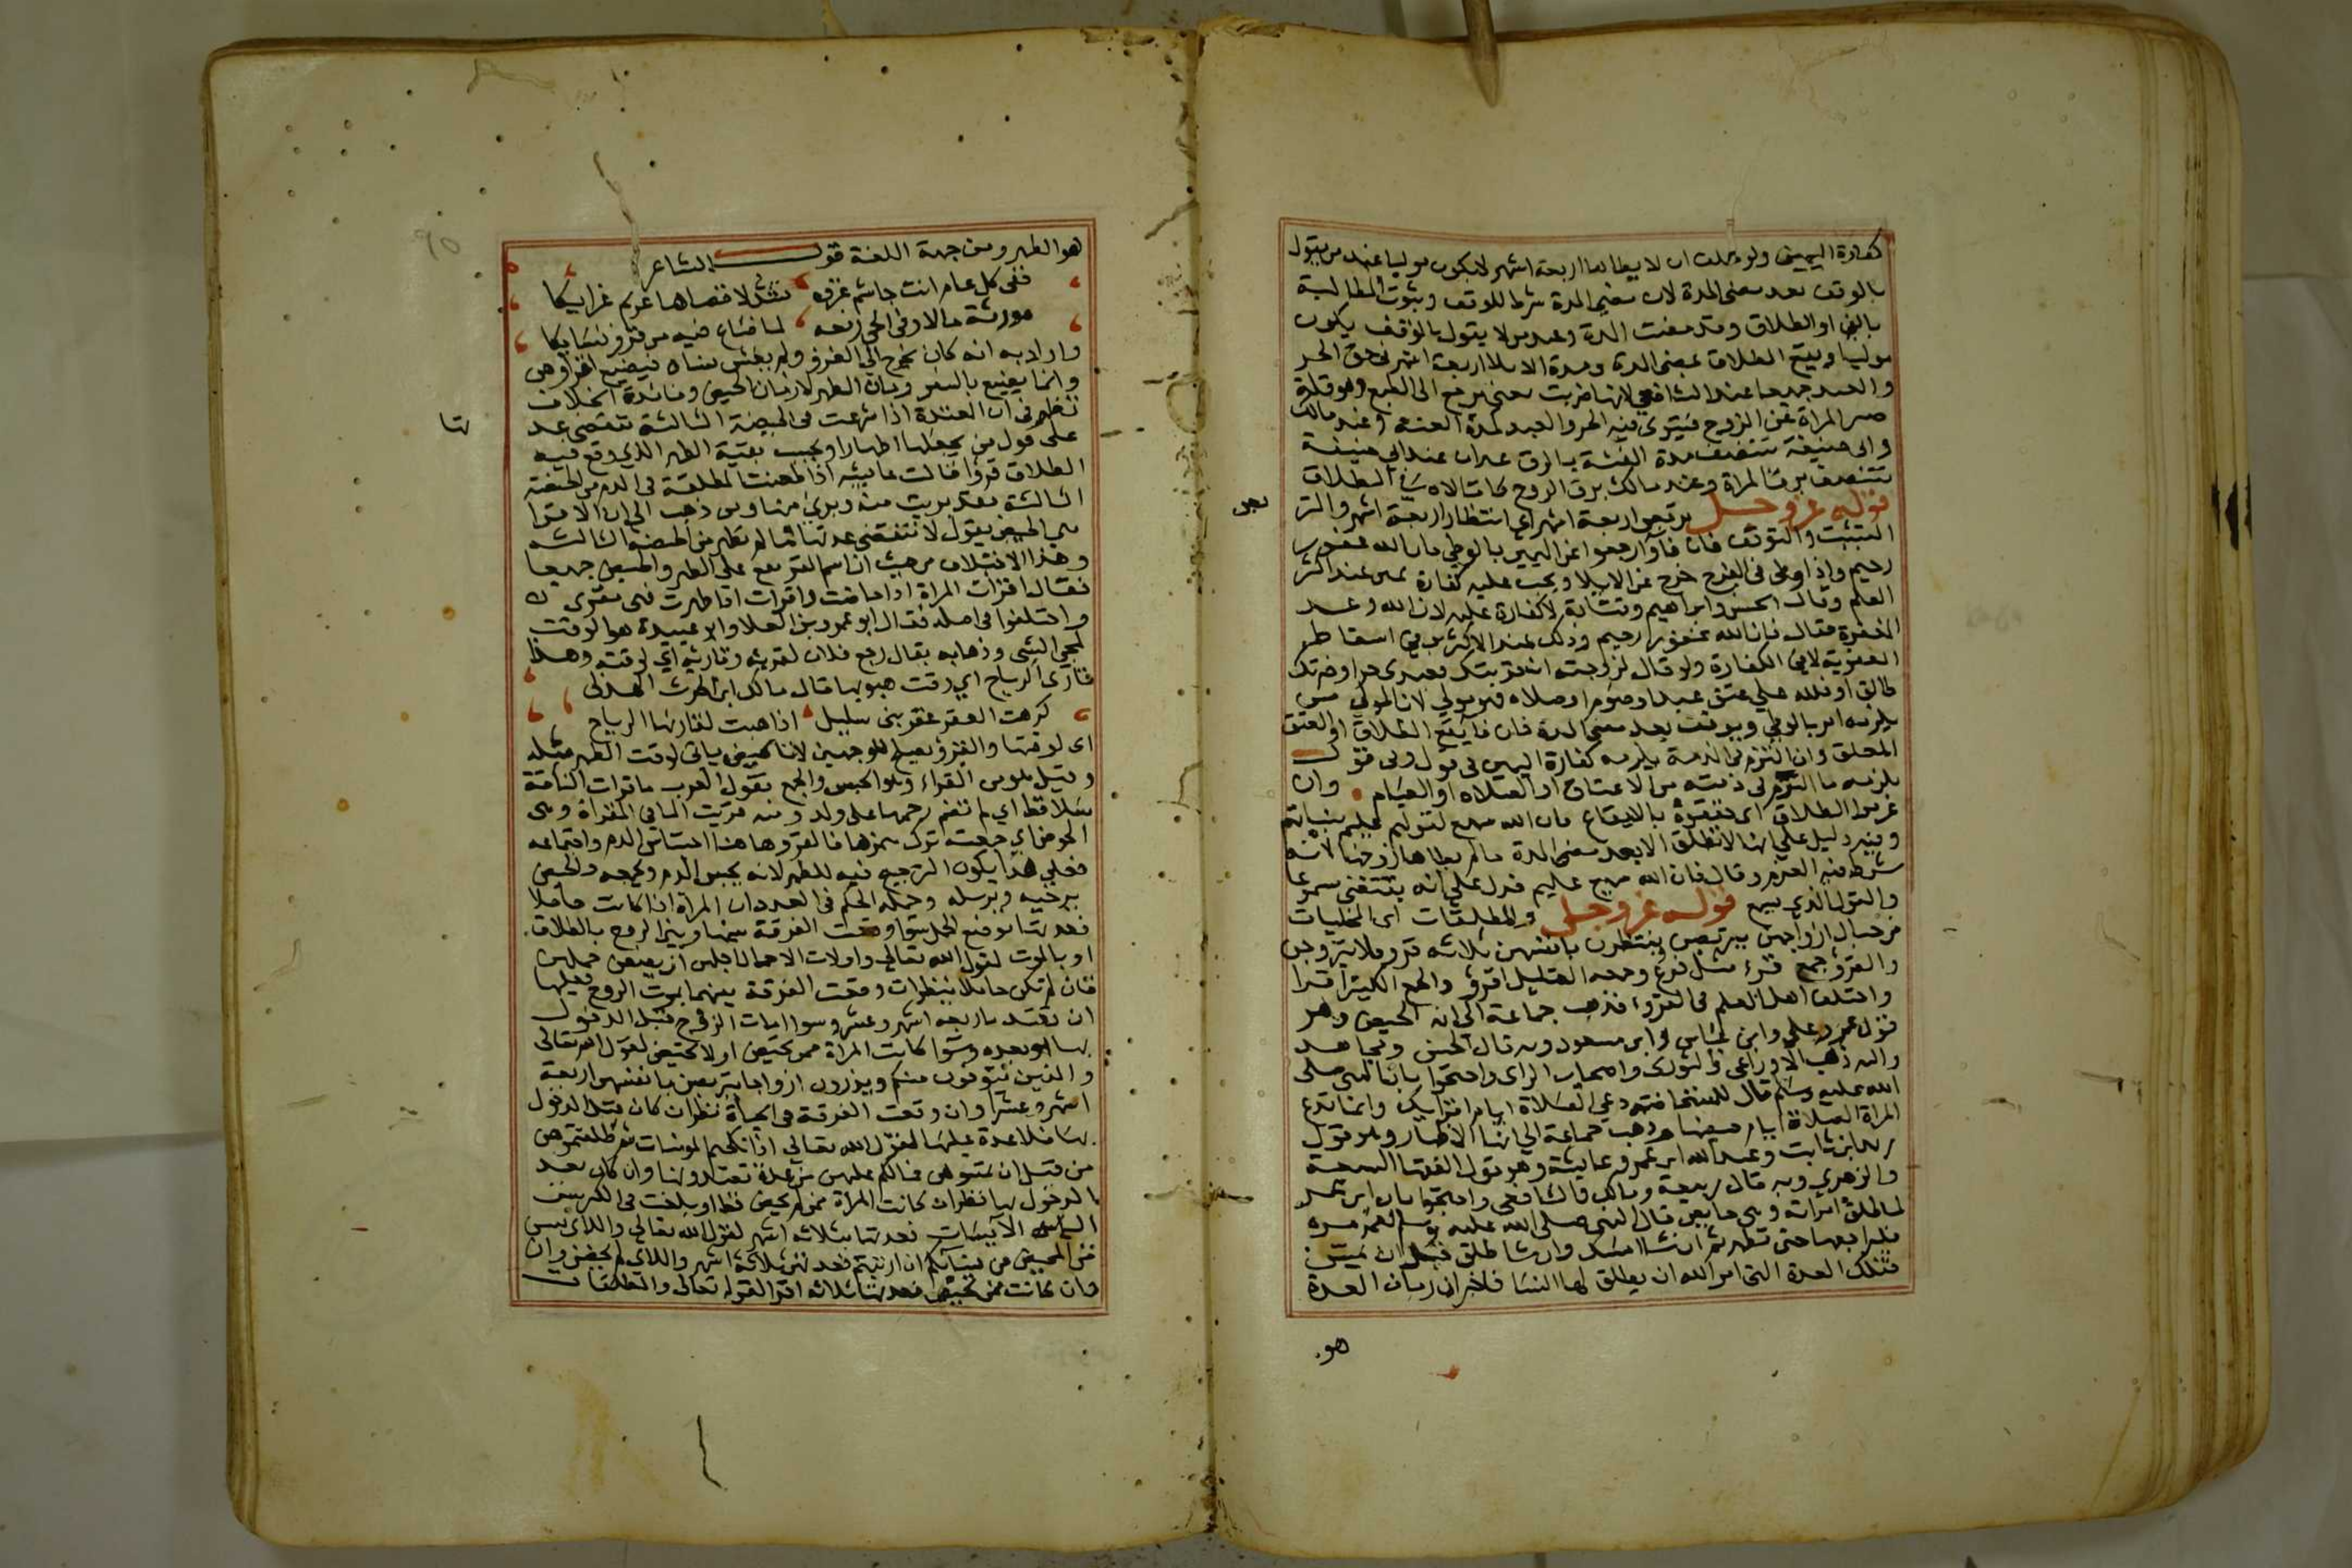 كفارة اليمين ولو حلف ان لا يطاها اربعة اشهر لا يكون موليا عند من يقول
بالوقف بعد مضى المدة لان مضي المدة شرط للوقف وثبوت المطالبة
بالفئ او الطلاق وقد مضت المدة وعند من لا يقول بالوقف يكون
موليا ويقع الطلاق بمضى المدة ومدة الايلا اربعة اشهر في حق الحر
والعبد جميعا عند الشافعي لانها ضربت لمعنى يرجع الى الطبع وهو قلة
صبر المراة عن الزوج فيستوى فيه الحر والعبد لمدة العنه وعند مالك
وابى حنيفة تتنصف مدة العنة بالرق غير ان عند ابى حنيفة
تتنصف برق المراة وعند مالك برق الزوج كما قالا في الطلاق
قوله عز وجل تربص اربعة اشهر اى انتظار اربعة اشهر والتر
بص
التثبت والتوقف فان فاؤا رجعوا عن اليمين بالوطي فان الله غفور
رحيم واذا وطى فى الفرج خرج عن الايلا ويجب عليه كفارة يمين عند اكثر
العلم وقال الحسن وابراهيم وقتادة لا كفارة عليه لان الله وعد
المغفرة فقال فان الله غفور رحيم وذلك عند الاكثرين في اسقاط
العقوبة لا في الكفارة ولو قال لزوجته ان قربتك فعبدى حر او ضرتك
طالق او لله علي عتق عبد او صوم او صلاه فهو مولي لان المولي من
يلزمه امر بالوطي ويوقف بعد مضى المدة فان فا يقع الطلاق او العتق
المعلق وان التزم فى الذمة يلزمه كفارة اليمين فى قول وفى قول
يلزمه ما التزم فى ذمته من الاعتاق او الصلاه او الصيام وان
عزموا الطلاق اى حققوه بالايقاع فان الله سميع لقولهم عليم بنياتهم
وفيه دليل على انها لا تطلق الا بعد مضى المدة ما لم يطلقها زوجها لانه
شرط فيه العزم وقال فان الله سميع عليم فدل على انه يقتضى مسموعا
والقول الذي يسمع قوله عز وجل والمطلقات اى المخليات
من حبال ازواجهن يتربصن ينتظرن بانفسهن ثلاثه قرو فلا يتزوجن
والقرؤ جمع قرء مثل فرع وجمعه القليل اقرؤ والجمع الكثير اقرا
واختلف اهل العلم فى القروء فذهب جماعة الى انه الحيض وهو
قول عمر وعلى وابن عباس وابن مسعود وبه قال الحسن ومجاهد
واليه ذهب الاوزاعى والثورى واصحاب الراى واحتجوا بان النبى صلى
الله عليه وسلم قال للمستحاضة دعي الصلاة ايام اقرايك وانما تدع
المراة الصلاة ايام حيضها وذهب جماعة الى انها الاطهار وهو قول
زيد ابن ثابت وعبد الله ابن عمر وعايشة وهو قول الفقها السبعة
والزهري وبه قال ربيعة ومالك والشافعى واحتجوا بان ابن عمر
لما طلق امراته وهى حايض قال النبى صلى الله عليه وسلم لعمر مره
فليراجعها حتى تطهر ثم ان شا امسك وان شا طلق قبل ان يمس
فتلك العدة التى امر الله ان يطلق لها النسا فاخبر ان زمان العدة
هو
٩٥
هو الطهر ومن جهة اللغة قول الشاعر
ففى كل عام انت جاشم غزوه تشد لاقصاها عزيم عزايكا
مورثة مالا وفى الحى رفعه لما ضاع فيه من قرو نسايكا
واراد به انه كان يخرج الى الغزو ولم يغش نساه فيضيع اقراوهن
وانما يضيع بالسفر زمان الطهر لا زمان الحيض وفائدة الخلاف
تظهر فى ان المعتدة اذا شرعت فى الحيضة الثالثة تنقضى عد
تها
على قول من يجعلها اطهارا ويحسب بقية الطهر الذى وقع فيه
الطلاق قرؤا قالت عايشه اذا طعنت المطلقة فى الدم من الحيضة
الثالثة فقد بريت منه وبرئ منها ومن ذهب الى ان الاقرا
هى الحيض يقول لا تنقضى عدتها ما لم تطهر من الحيضة الثالثه
وهذا الاختلاف من حيث ان اسم القرء يقع على الطهر والحيض جميعا
فقال اقرات المراة اذا حاضت واقرات اذا طهرت فهى مقرئ
واختلفوا فى اصله فقال ابو عمرو بن العلا وابو عبيدة هو الوقت
لمجى الشى وذهابه يقال رجع فلان لقرئه وقاريه اى لوقته وهذا
قارئ الرياح اى وقت هبوبها قال مالك ابن الحرث الهذلى
كرهت العقر عقر بنى سليل اذا هبت لقاريها الرياح
اى لوقتها والقرؤ يصلح للوجهين لان الحيض ياتى لوقت الطهر مثله
وقيل هو من القراء وهو الحبس والجمع تقول العرب ما قرات الناقة
سلا قط اى لم تضم رحمها على ولد ومنه قريت الما فى المقراة وهى
الحوض اى جمعت ترك همزها فالقرو هاهنا احتباس الدم واجتماعه
فعلي هذا يكون الترجيح فيه للطهر لانه يحبس الدم ويجمعه والحيض
يرخيه ويرسله وجملة الحكم فى العدد ان المراة اذا كانت حاملا
فعدتها بوضع الحمل سوا وقعت الفرقة بينها وبين الزوج بالطلاق
او بالموت لقول الله تعالى واولات الاحمال اجلهن ان يضعن حملهن
فان لم تكن حاملا ينظر ان وقعت الفرقة بينهما بموت الزوج فعليها
ان تعتد باربعه اشهر وعشر وسوا مات الزوج قبل الدخول
بها او بعده وسوا كانت المراة ممن تحيض او لا تحيض لقول الله تعالى
والذين يتوفون منكم ويذرون ازواجا يتربصن بانفسهن اربعة
اشهر وعشرا وان وقعت الفرقة فى الحياة نظر ان كان قبل الدخول
بها فلا عدة عليها لقول الله تعالي اذا نكحتم المومنات ثم طلقتموهن
من قبل ان تمسوهن فمالكم عليهن من عدة تعتدونها وان كان بعد
الدخول بها نظر ان كانت المراة ممن لم تحض قط او بلغت فى الكبر سن
الايسات فعدتها بثلاثه اشهر لقول الله تعالي واللائ يئسن
من المحيض من نسائكم ان ارتبتم فعدتهن ثلاثة اشهر واللاي لم يحضن وان
وان كانت ممن تحيض فعدتها ثلاثه اقرا لقوله تعالى والمطلقات